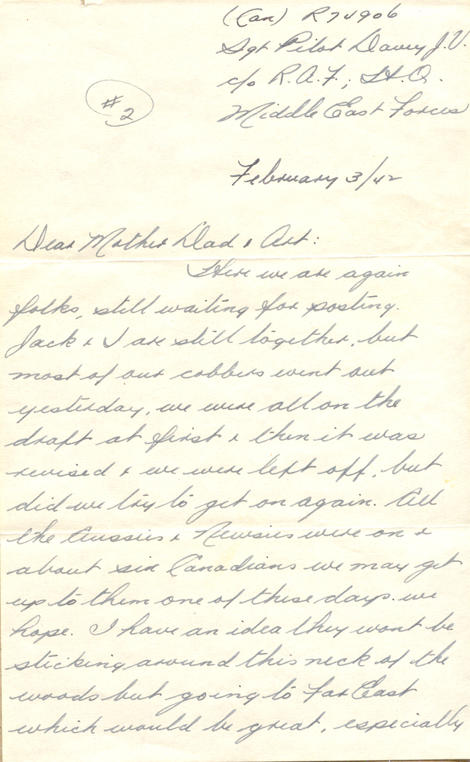 (Can) R74906
Sgt Pilot Davey J.V.
c/o R.A.F., H.Q.
Middle East Forces
# 2
February 3/42
Dear Mother Dad & Art:
Here we are again
folks, still waiting for posting.
Jack & I are still together, but
most of our cobbers went out
yesterday, we were all on the
draft at first & then it was
revised & we were left off, but
did we try to get on again. All
the Aussies & Newsies were on &
about six Canadians we may get
up to them one of these days. we
hope. I have an idea they wont be
sticking around this neck of the
woods but going to Far East
which would be great, especially